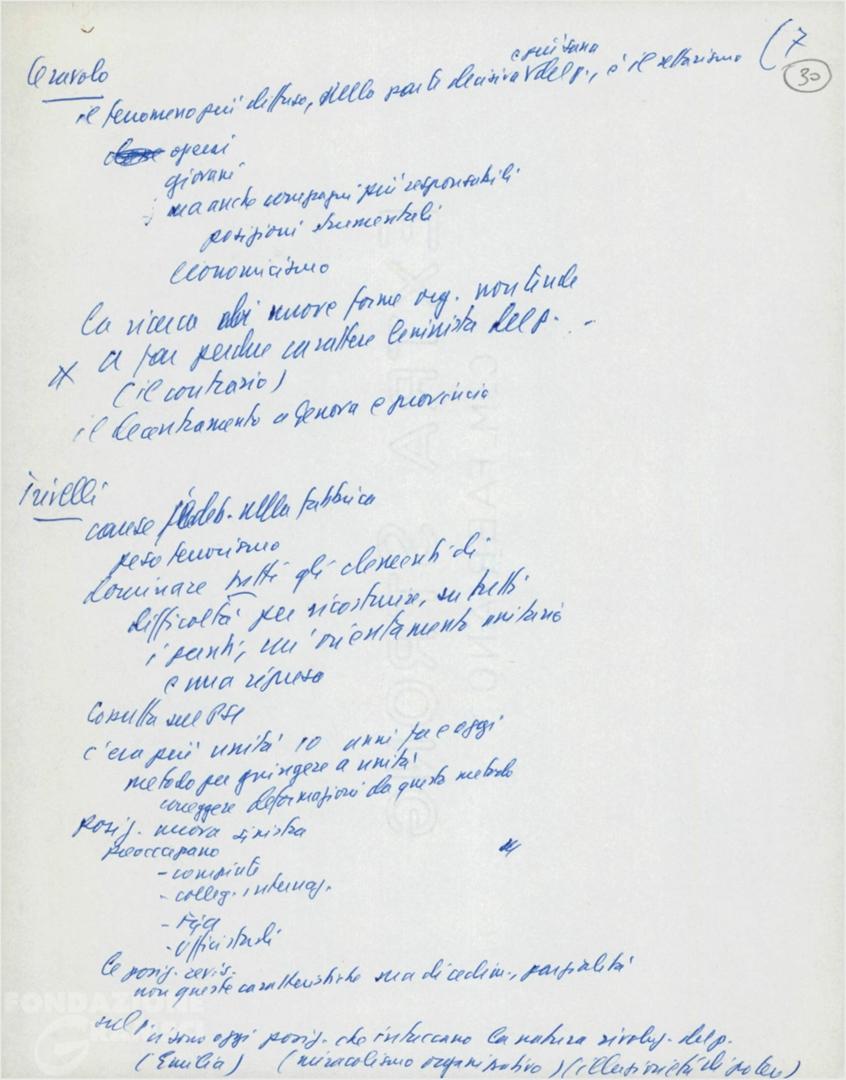 (7
30
Ceravolo
e più sana
il fenomeno più diffuso, nella parte decisiva del p., è il settarismo
operai
giovani
ma anche compagni più responsabili
posizioni strumentali
economicismo
la ricerca di nuove forme org. non tende
x a far perdere carattere leninista del p.
(il contrario)
il decentramento a Genova e provincia
Trivelli
cause nella fabbrica
peso
dominare tutti gli elementi di
difficoltà per ricostruire, su tutti
i punti, un'orientamento unitario
e una ripresa
Consulta sul PSI
c'era più unità 10 anni fa e oggi
metodo per giungere a unità
correggere deformazioni da questo metodo
posiz. nuova sinistra
preoccupano
-
- colleg. internaz.
- Fgci
- Uffici studi
le posiz. revis.
non queste caratteristiche ma di cedim., parzialità
sul p.
ci sono oggi posiz. che intaccano la natura rivoluz. del p.
(Emilia) (miracolismo organizzativo) (
FONDAZIONE
GRAMSCI
EXTRA STRONG